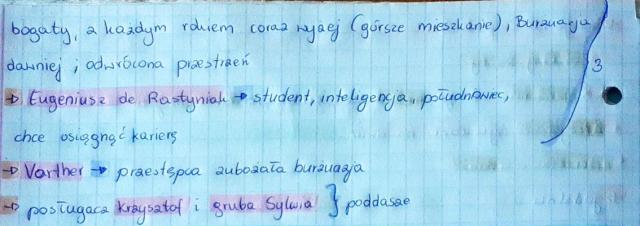 bogaty, z każdym rokiem coraz wyżej (górsze mieszkanie), Burżuazja
dawniej ; odwrócona przestrzeń
→ Eugeniusz de Rastyniak → student, inteligencja, południowiec, 3
chce osiągnąć karierę
→ Varther → przestępca zubożała burżuazja
→ posługacz Krzysztof i gruba Sylwia } poddasze